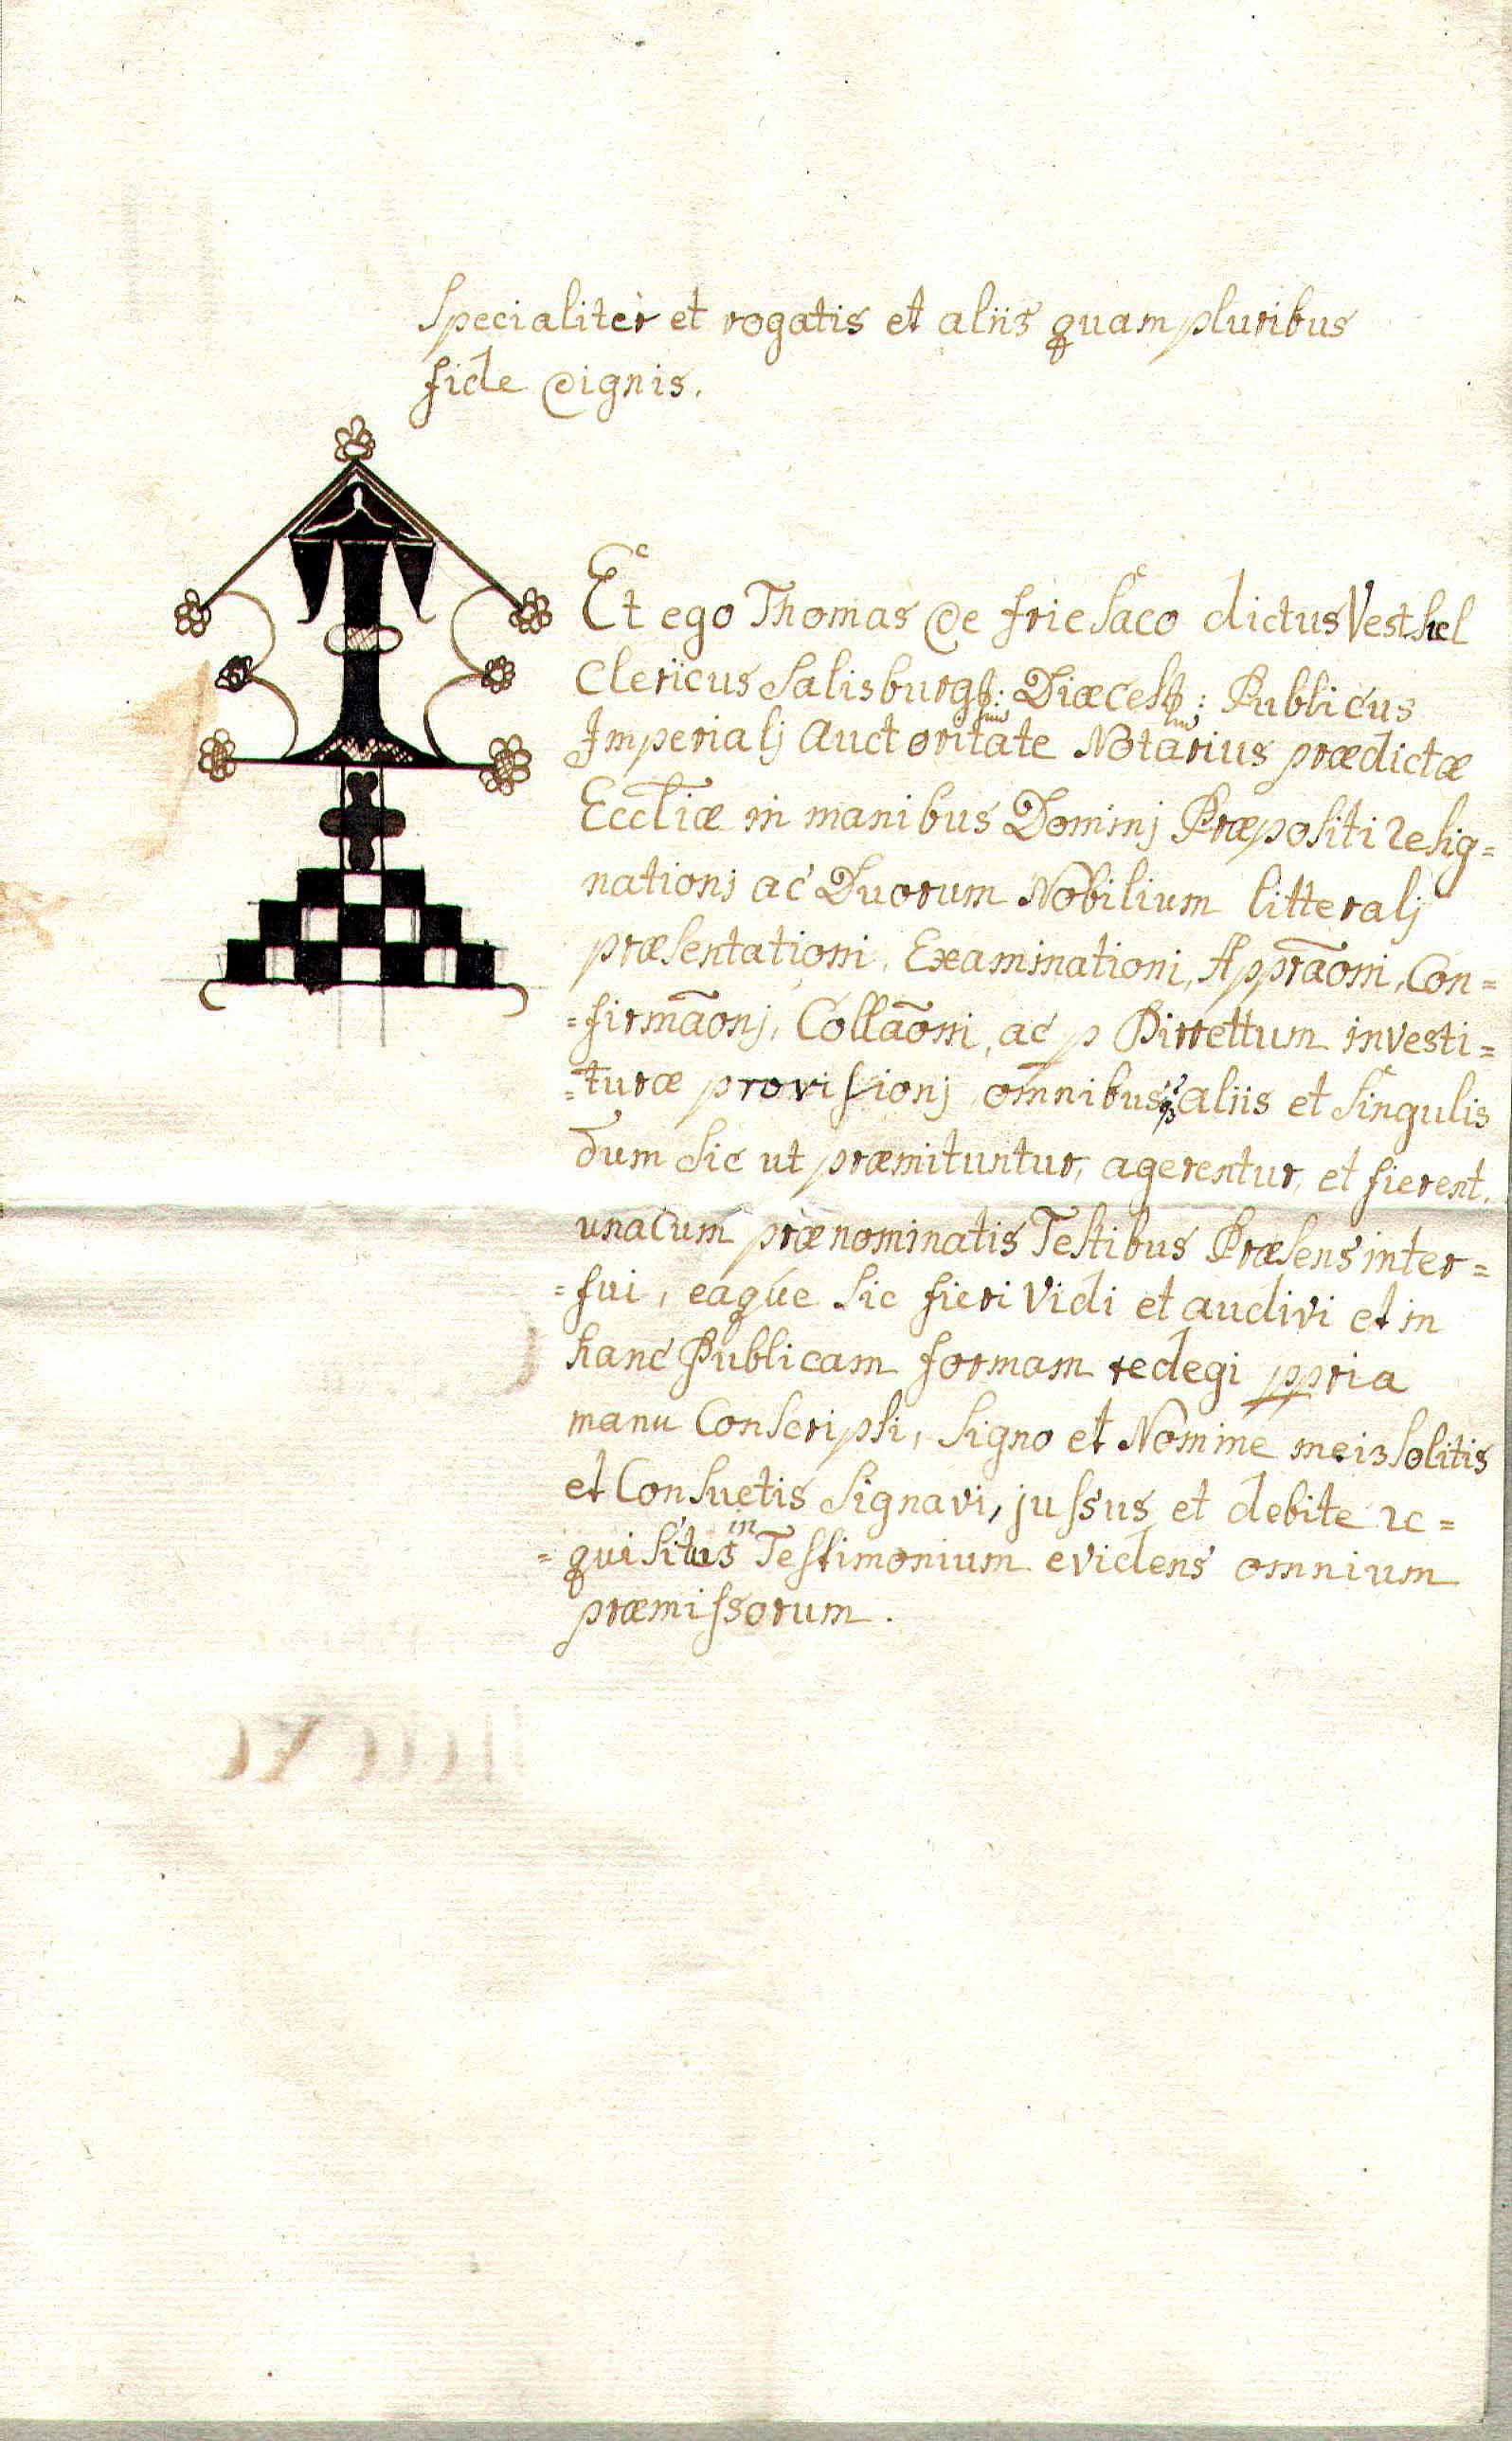 Specialiter et rogatis et aliis quampluribus
fide dignis.
Et ego Thomas de friesaco dictus Vesthel
Clericus Salisburg: Diæces: Publicus
Imperialj Auctoritate Notarius prædictæ
Eccl̄iæ in manibus Dominj Præpositi resig=
nationj ac Duorum Nobilium litteralj
præsentationi, Examinationi, Appr̄aoni, Con=
=firmāonj, Collāoni, ac p Birrettum investi=
=turæ provisionj omnibusq aliis et Singulis
dum sic ut præmituntur, agerentur, et fierent,
unacum prænominatis Testibus Præsens inter=
=fui, eaque sic fieri Vidi et audivi et in
hanc Publicam formam redegi ppria
manu Conscripsi, Signo et Nomine meis Solitis
et Consuetis Signavi, jussus et debite re=
=quisitus in Testimonium evidens omnium
præmissorum.